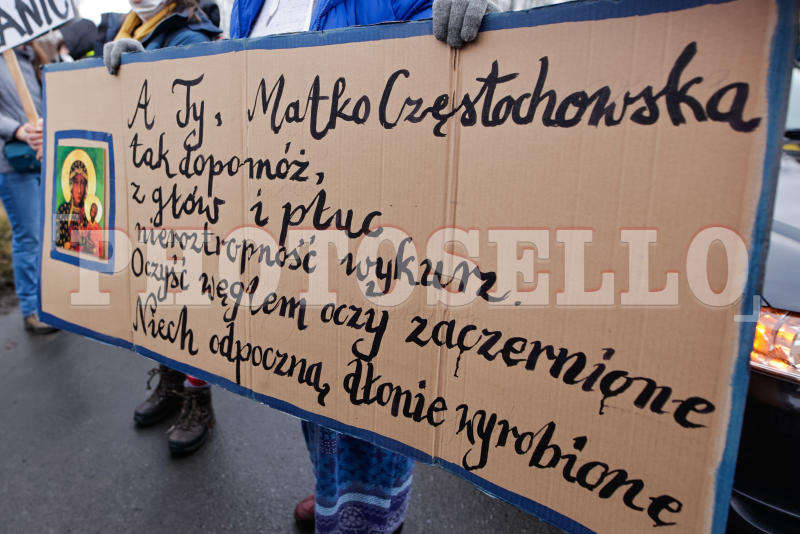 ANIC
A Ty, Matko Częstochowska
tak dopomóż,
z głów i płuc
nieroztropność wykurz.
Oczyść węglem oczy zaczernione
Niech odpoczną, dłonie wyrobione
PHOTOSELLO